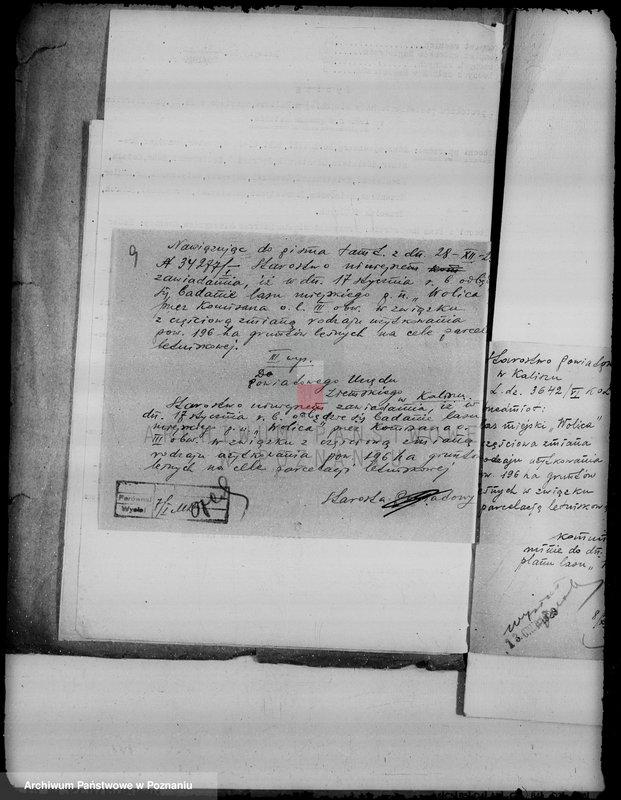 9
Nawiązując do pisma tamt. z dn. 28-XII-
A 34277/I Starostwo niniejszem
zawiadamia, iż w dn. 17 stycznia r. b. odbę
się badanie lasu miejskiego p. n. "Wolica
przez Komisarza o. l. III obw. w związku
z częściową zmianą rodzaju użytkowania
pow. 196 ha gruntów leśnych na cele parcela
letniskowej.
III wys.
Do
Powiatowego Urzędu
Ziemskiego
w Kaliszu.
Starostwo niniejszem zawiadamia, iż w
dn. 17 stycznia r. b. odbędzie się badanie lasu
miejskiego p. n. "Wolica" przez Komisarza o. l.
III obw. w związku z częściową zmianą
rodzaju użytkowania pow. 196 ha gruntów
leśnych na cele parcelacji letniskowej
Starosta Powiatowy
Porównał
Wysłał
7/I
Starostwo Powiatow
w Kaliszu
L. dz. 3642/VI
Przedmiot:
las miejski "Wolica"
częściowa zmiana
rodzaju użytkowania
pow. 196 ha gruntów
leśnych w związku
parcelacją letniskow
do dn.
planu lasu "
ARCHIWUM PAŃSTWOWE
W POZNANIU
Archiwum Państwowe w Poznaniu